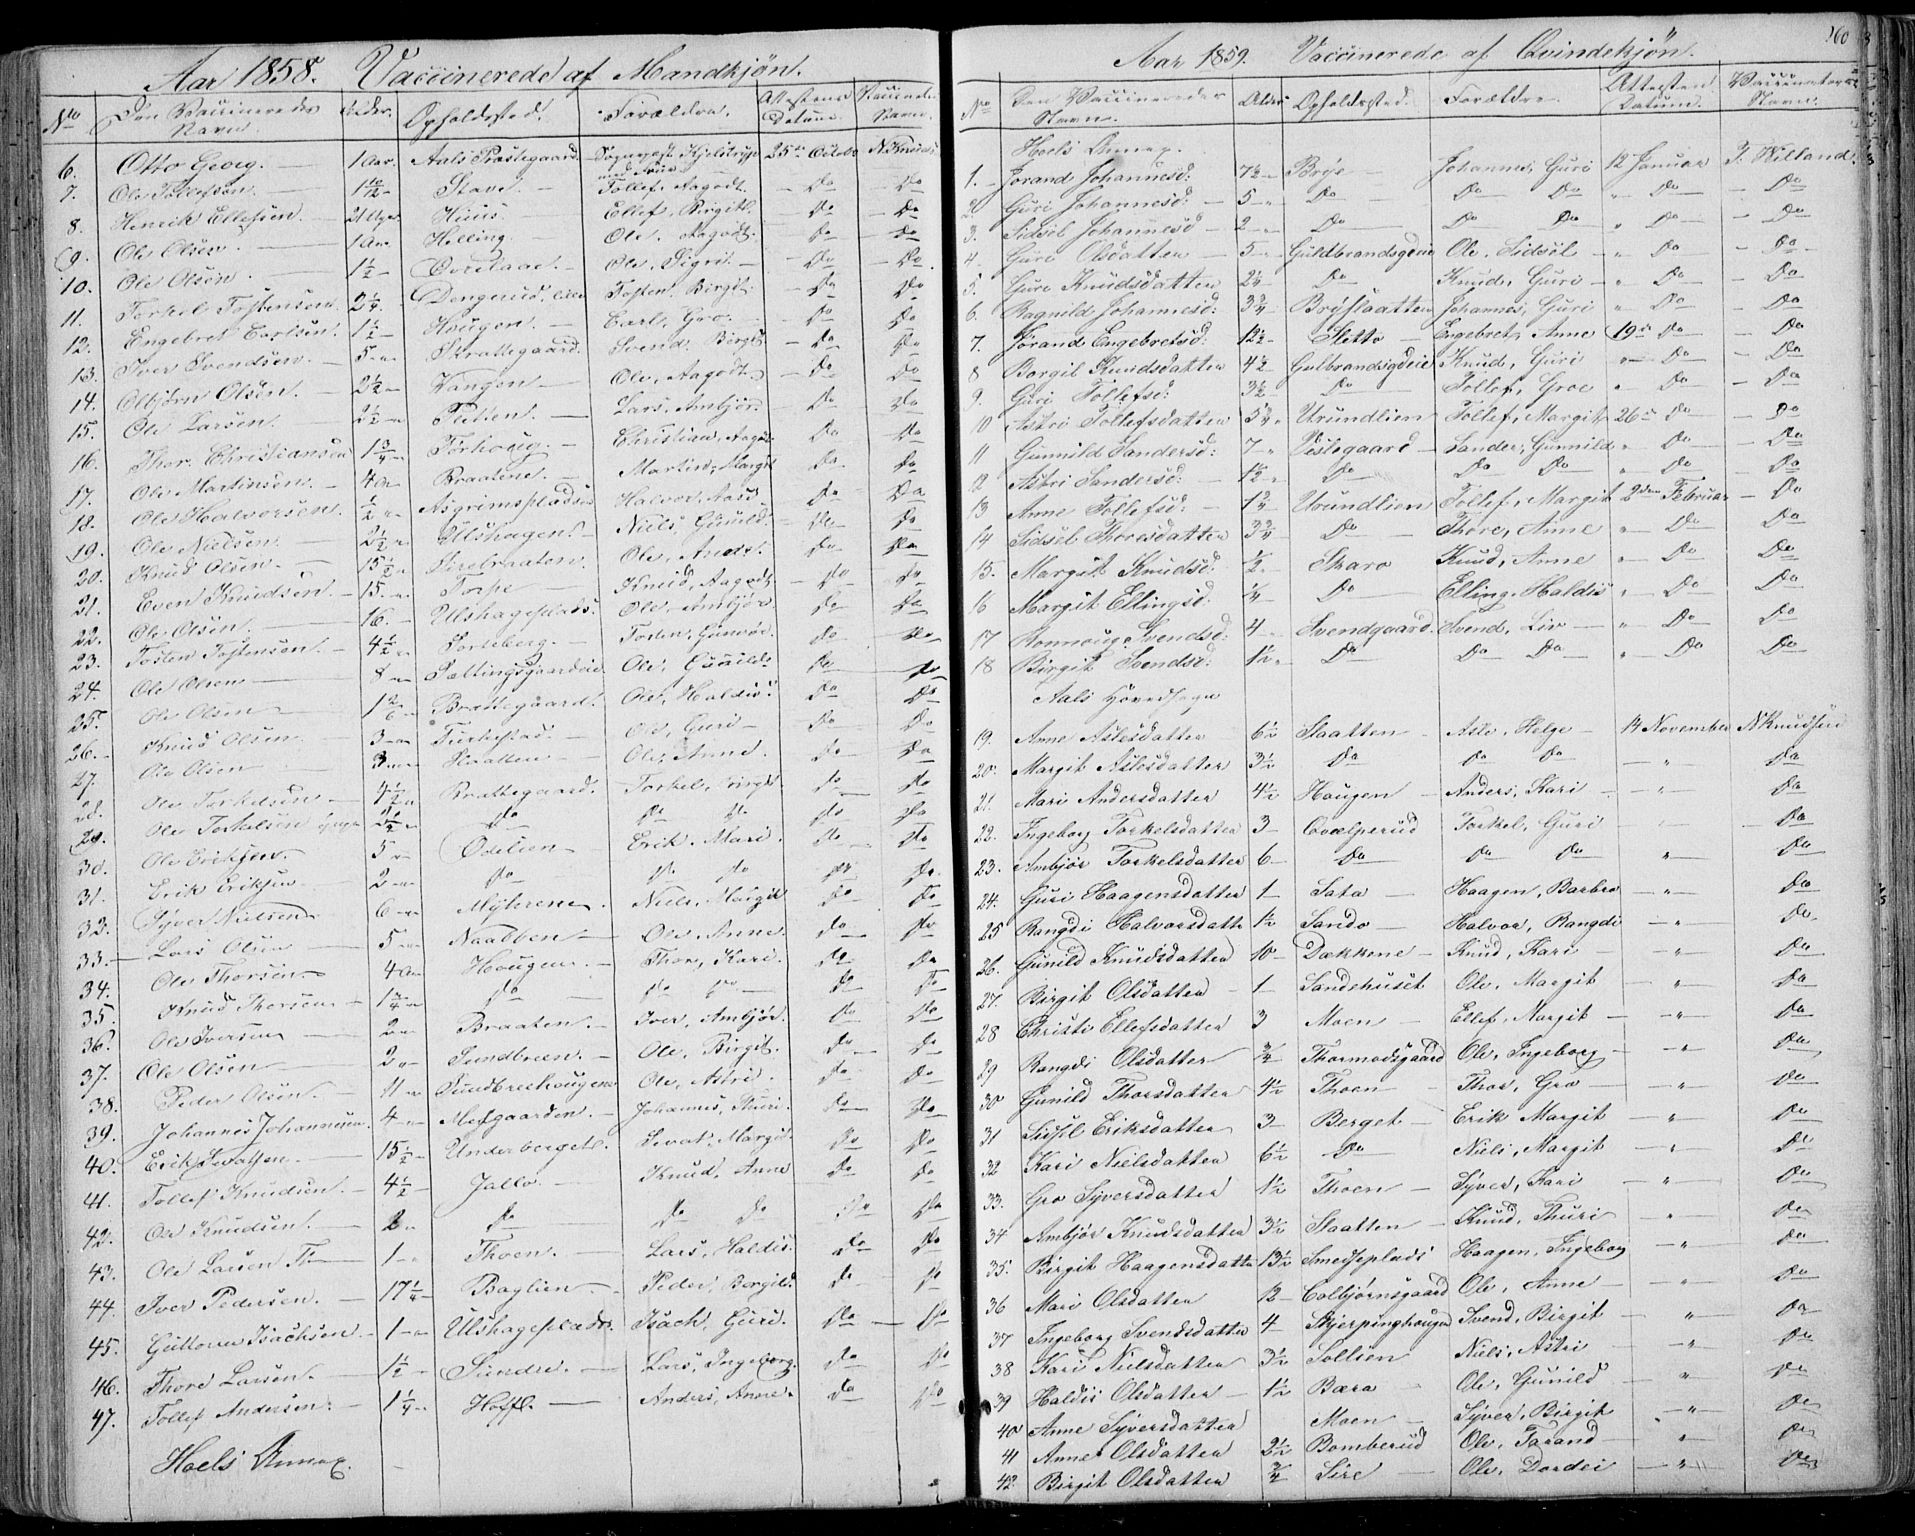 Aar 1858. Vaccinerede af Mandkjøn.
No Den Vaccineredes Navn. Alder. Opholdssted. Forældre. Attestens Datum. Navn.
6. Otto Georg. 1 Aar. Aals Præstegaard. Sognepræst Kjelstrup med Frue 25de October N. Knuds
7. Ole Tollefsen 1 10/12 Stave. Tollef, Aagodt. Do Do
8. Henrik Ellefsen. 21 Uger Huus. Ellef, Birgit. Do Do
9. Ole Olsen. 1 Aar Helling. Ole, Aagodt. Do Do
10. Ole Olsen. 1 1/2 Ole, Sigrit. Do Do
11. Torkel Tostensen 2 1/4 Dengerud, lille Tosten, Birgit. Do Do
12. Engebret Carlsen. 1 1/2 Hougen. Carl, Gro. Do Do
13. Iver Svendsen. 5 Skrattegaard. Svend, Birgit Do Do
14. Olbjørn Olsen. 2 1/2 Vangen Ole, Aagodt. Do Do
15. Ole Larsen. 2 1/2 Putten. Lars, Ambjør. Do Do
16. Thor Christiansen 1 3/4 Torhoug. Christian, Do Do
17. Ole Martinsen. 4 Braatene. Martin, Margit Do Do
18. Ole Halvorsen. 1/2 Asgrimsplads Halvor, Do Do
19. Ole Nielsen. 2 1/2 Ulshagen. Niels, Gunild. Do Do
20. Knud Olsen. 15 1/2 Sirebraaten. Ole, Do Do
21. Even Knudsen. 15. Torpe Knud, Aagodt. Do Do
22. Ole Olsen. 16. Ulshageplads. Ole, Ambjør. Do Do
23. Tosten Tostensen 4 1/2 Sorteberg. Tosten, Gunvor. Do Do
24. Ole Olsen 8 Ole, Gunild. Do Do
25. Ole Olsen Brattegaard. Ole, Haldis. Do Do
26. Knud Olsen. 3 Ole, Guri Do Do
27. Ole Olsen 3 Slaatten Ole, Anne. Do Do
28. Ole Torkelsen 4 1/2 Brattegaard. Torkel, Birgit Do Do
29. Ole Torkelsen yngre 2 1/2 Do Do Do Do Do
30. Ole Eriksen. 5 Ødelien Erik, Mari. Do Do
31. Erik Eriksen 2 Do Do Do Do Do
32. Syver Nielsen 6 Myhrene. Niels, Margit Do Do
33. Lars Olsen 5 Naalben Ole, Anne. Do Do
34. Ole Thorsen 4 Hougen. Thor, Kari. Do Do
35. Knud Thorsen 1 3/4 Do Do Do Do Do
36. Ole Iversen 2 Braaten. Iver, Ambjør. Do Do
37. Ole Olsen 2 Sundbreen. Ole, Birgit. Do Do
38. Peder Olsen. 11 Sundbreehougen Ole, Astri. Do Do
39. Johannes Johannesen. 4 Medgaarden. Johannes, Thuri. Do Do
40. Erik Sevatsen. 15 1/2 Underberget. Sevat, Margit. Do Do
41. Tollef Knudsen. 4 1/2 Jallo. Knud, Anne Do Do
42. Ole Knudsen. 2 Do Do Do Do Do
43. Ole Larsen Th 1 Thoen. Lars, Haldis. Do Do
44. Iver Pedersen. 17 1/4 Baglien. Peder, Bergit. Do Do
45. Guttorm Isachsen. 1 Ulshageplads. Isach, Guri. Do Do
46. Thore Larsen. 1 1/2 Sundre. Lars, Ingeborg. Do Do
47. Tollef Andersen. 1 1/4 Hoffl. Anders, Anne. Do Do
Hoels Annex.
160
Aar 1859. Vaccinerede af Qvindekjøn.
No Den Vaccineredes Navn. Alder Opholdssted. Forældre. Attestens Datum. Vaccinateurs Navn.
Hoels Annex.
1. Jørand Johannesd: 7 1/2 Brøe Johannes, Guri 12 Januar J. Villand
2. Guri Johannesd: 5 Do Do Do Do Do
3. Sidsel Johannesd 2 Do Do Do Do Do
4. Guri Olsdatter 5 Guldbrandsgeie Ole, Sidsel Do Do
5. Guri Knudsdatter 2 1/4 Do Knud, Guri Do Do
6. Ragnild Johannesd: 3 3/4 Brøslaatten Johannes, Guri Do Do
7. Jørand Engebretsd: 12 1/2 Sletto Engebret, Anne 19de Do Do
8 Borgil Knudsdatter 4 1/2 Gulbrandsgdeie Knud, Guri Do Do
9. Guri Tollefsd: 3 1/2 Do Tollef, Groe Do Do
10 Astri Tollefsdatter 5 3/4 Urundlien Tollef, Margit 26de Do Do
11 Gunnild Sandersd: 7 Vestegaard Sander, Gunnild Do Do
12 Astri Sandersd: 1 1/2 Do Do Do Do Do
13 Anne Tollefsd: 1 3/4 Urundlien Tollef, Margit 2den Februar Do
14 Sidsel Thoresdatter 3 3/4 Do Thore, Anne Do Do
15. Margit Knudsd: 1/2 Skaro Knud, Anne Do Do
16 Margit Ellingsd: 1/4 Do Elling, Haldis Do Do
17 Ronnoug Svendsd: 4 Svendgaard Svend, Liv Do Do
18 Birgit Svendsd: 1 1/2 Do Do Do Do Do
Aals Hovedsogn
19. Anne Aslesdatter 6 1/2 Slaatten Asle, Helge 14 November N. Knudsen
20. Margit Aslesdatter 3 1/2 Do Do Do " Do
21. Mari Andersdatter 4 1/2 Hougen Anders, Kari " Do
22. Ingeborg Torkelsdatter 3 Qvælperud Torkel, Guri Do
23. Ambjør Torkelsdatter 6 Do Do Do " Do
24. Guri Haagensdatter 1 Sata Haagen, Barbro " Do
25 Rangdi Halvorsdatt 1 1/2 Sando Halvor, Rangdi " Do
26. Gunild Knudsdatter 10 Dækkene Knud, Kari " Do
27. Birgit Olsdatter 1 Sandehuset Ole, Margit " Do
28 Christi Ellefsdatter 3 Moen Ellef, Margit " Do
29 Rangdi Olsdatter 3/4 Thormodsgaard Ole, Ingeborg " Do
30 Gunild Thorsdatter 4 1/2 Thoen Thor, Gro " Do
31 Sidsel Eriksdatter 3 Berget Erik Margit " Do
32 Kari Nielsdatter 6 1/2 Do Niels, Margit " Do
33. Gro Syversdatter 1 1/2 Thoen Syver, Kari " Do
34 Ambjør Knudsdatter 3 1/2 Slaatten Knud, Thuri " Do
35. Birgit Haagensdatter 13 1/2 Smedseplads Haagen, Ingeborg " Do
36 Mari Olsdatter 12 Colbjørnsgaard Ole, Anne " Do
37 Ingeborg Svendsdatter 4 Skjerpinghougen Svend, Birgit " Do
38 Kari Nielsdatter 3 1/2 Sollien Niels, Astri " Do
39 Haldis Olsdatter 1 1/2 Bæra Ole, Gunild " Do
40 Anne Syversdatter Moen Syver, Birgit " Do
41 Anne Olsdatter 2 1/2 Bomberud Ole, Tarand " Do
42. Birgit Olsdatter 3/4 Sire Ole, Dordei " Do